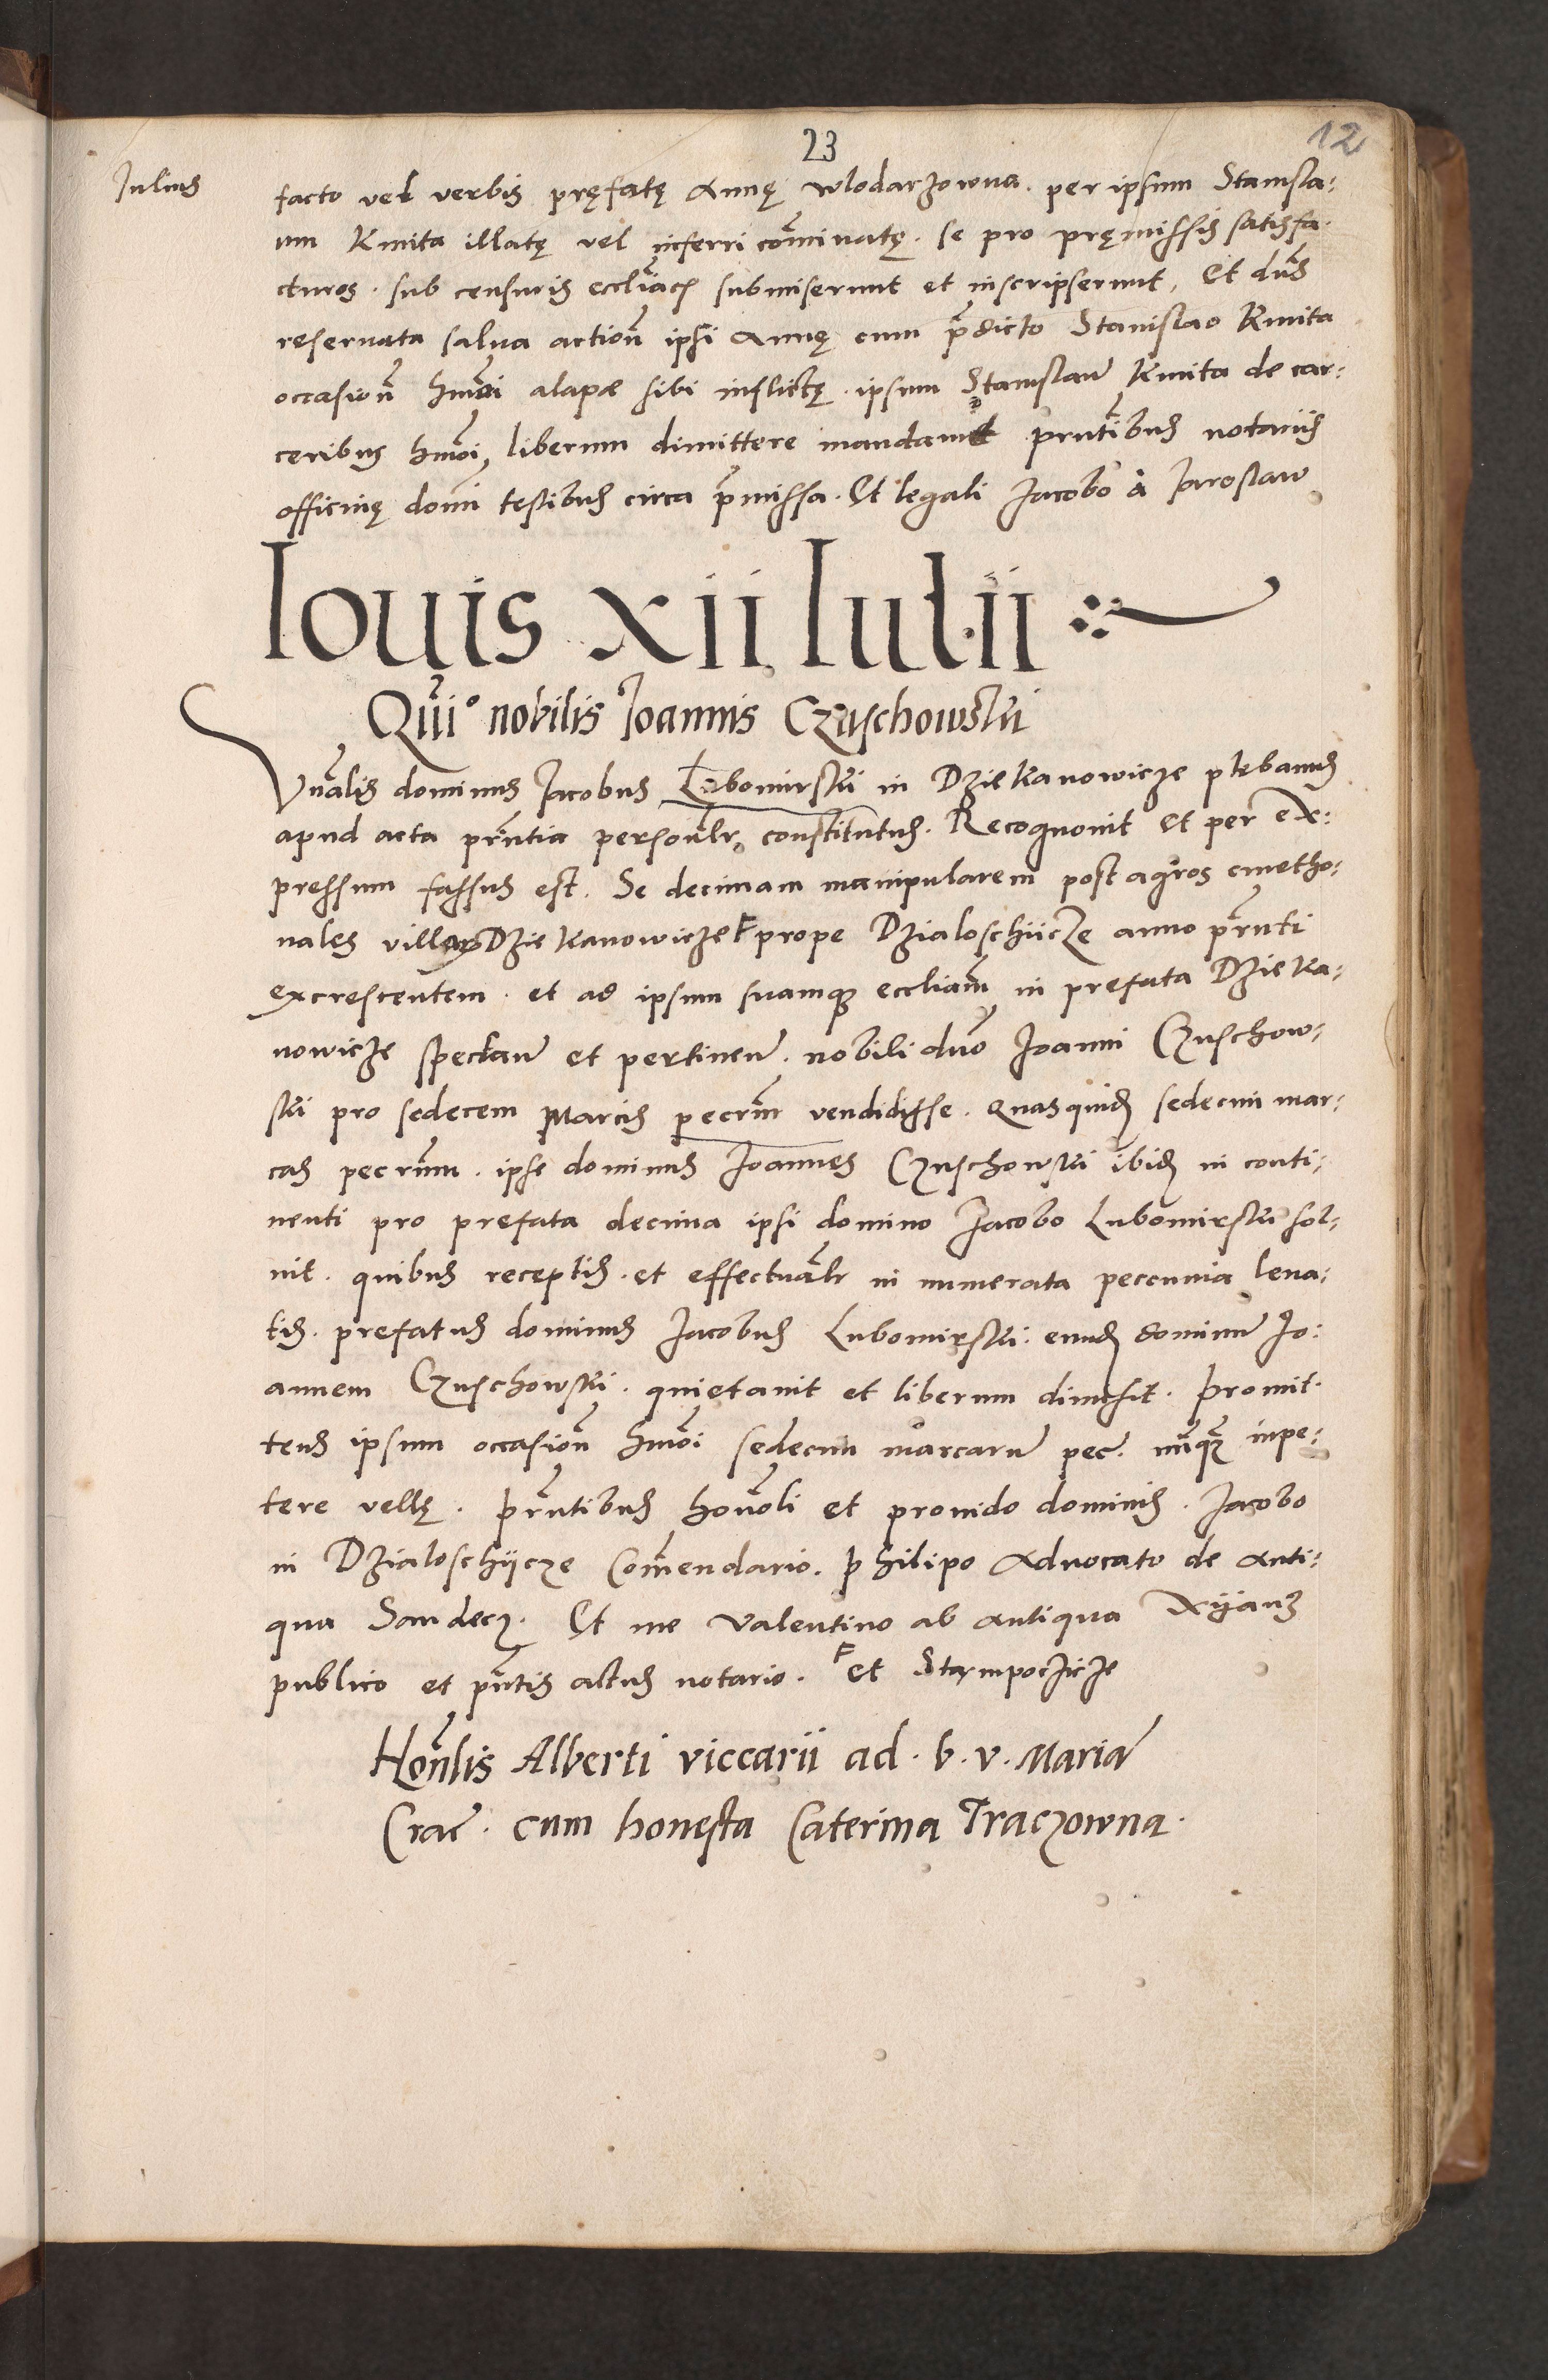 23
12
Iulius
facto vel verbis pręfatę Annę Wlodarzowna. per ipsum Stanisla-
um Kmita illatę vel inferri co̅minatę. se pro pręmissis satisfa-
cturos. sub censuris eccl̅iac̅ submiserunt et inscripserunt, Et dn̅s
reseruata salua actio̅n ipsi Annę cum p̅dicto Stanislao Kmita
occasio̅n hm̅oi alapæ sibi inflictę. ipsum Stanislau̅ Kmita de car-
ceribus hm̅oi liberum dimittere mandauit prn̅tibus notariis
officinę dom̅i testibus circa p̅missa. Et legali Jacobo à Jaroslaw
Iouis xii Iulii
Qui° nobilis Ioannis Czuschowski
Vn̅alis dominus Jacobus Lubomirski in Dziekanowicze plebanus
apud acta prn̅tia person̅lr constitutus. Recognouit Et per ex-
pressum fassus est. Se decimam manipularem post agros cmetho-
nales villarȝ Dziekanowicze ⁊ prope Dzialoschiicze anno prn̅ti
excrescentem. et ad ipsum suamqȝ eccliam̅ in prefata Dzieka-
nowicze spectan̅ et pertinen̅. nobili dn̅o Joanni Czuschow-
ski pro sedecem Marcis pecrn̅ vendidisse. Quasquidȝ sedecim mar-
cas pecrn̅m. ipse dominus Joannes Czuschowski ibidȝ in conti-
nenti pro prefata decima ipsi domino Jacobo Lubomirski sol-
uit. quibus receptis. et effectua̅lr in numerata peccunia leua-
tis. prefatus dominus Jacobus Lubomirski. eundȝ dominu̅ Jo-
annem Czuschowski. quietauit et liberum dimisit. Promit-
tens ipsum occasio̅n hm̅oi sedecim marcaru̅ pec̅. nu̅nqȝ inpe-
tere vellę. prn̅tibus hon̅oli et prouido dominis. Jacobo
in Dzialoschÿcze Co̅mendario. Philipo Aduocato de Anti-
qua Sandecȝ. Et me Valentino ab antiqua Xÿanȝ
publico et pn̅tis actus notario. ⁊ et Stempoczicze
Hon̅lis Alberti viccarii ad. b. v. Maria̅
Crac̅. cum honesta Caterina Traczowna.